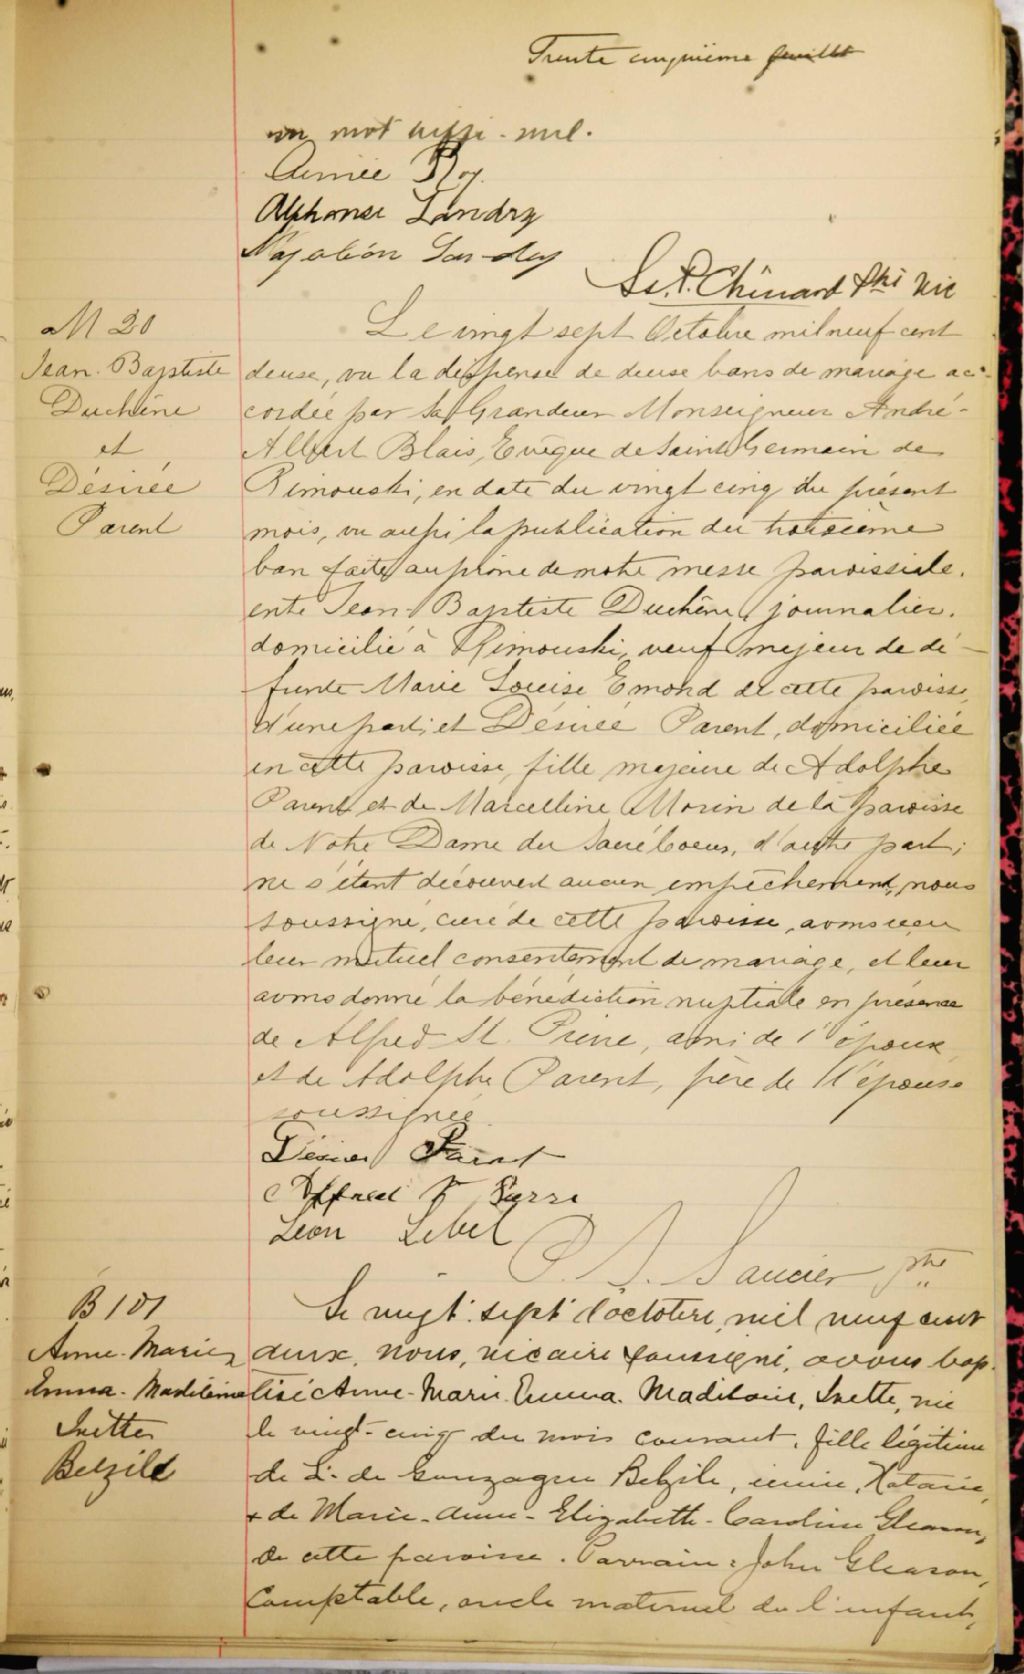 Trente cinquième feuillet
un mot aussi nul.
Aimée Roy
Alphonse Landry
Napoléon Landry
Ls. P. Chénard ptre vic
M 20
Jean Baptiste
Duchêne
et
Désirée
Parent
Le vingt sept Octobre mil neuf cent
deuse, vu la dispense de deuse bans de mariage ac-
cordée par Sa Grandeur Monseigneur André-
Albert Blais, Evêque de Saint Germain de
Rimouski, en date du vingt cinq du présent
mois, vu aussi la publication du troisième
ban faite au prône de notre messe paroissiale.
ente Jean-Baptiste Duchêne, journalier.
domicilié à Rimouski, veuf majeur de dé-
funte Marie Louise Emond de cette paroisse,
d'une part; et Désirée Parent, domiciliée
en cette paroisse, fille majeure de Adolphe
Parent et de Marcelline Morin de la paroisse
de Notre Dame du Sacré Coeur, d'autre part;
ne s'étant découvert aucun empêchement, nous
soussigné, curé de cette paroisse, avons reçu
leur mutuel consentement de mariage, et leur
avons donné la bénédiction nuptiale en présence
de Alfred St. Pierre, ami de l'époux,
et de Adolphe Parent, père de l'épouse
soussignée
Désirée Parent
Alffred St Pierre
Léon Lebel
Saucier ptre
B 101
Anne-Marie
Emma-Madeleine
Ivette
Belzile
Le vingt-sept d'octobre, mil neuf cent
deux, nous, vicaire soussigné, avons bap-
tisé Anne-Marie Emma-Madeleine, Ivette, née
le vingt-cinq du mois courant, fille légitime
de L. de Gonzague Belzile, Notaire,
+ de Marie-Anne-Elizabeth-Caroline Gleason,
de cette paroisse. Parrain: John Gleason,
Comptable, oncle maternel de l'enfant,